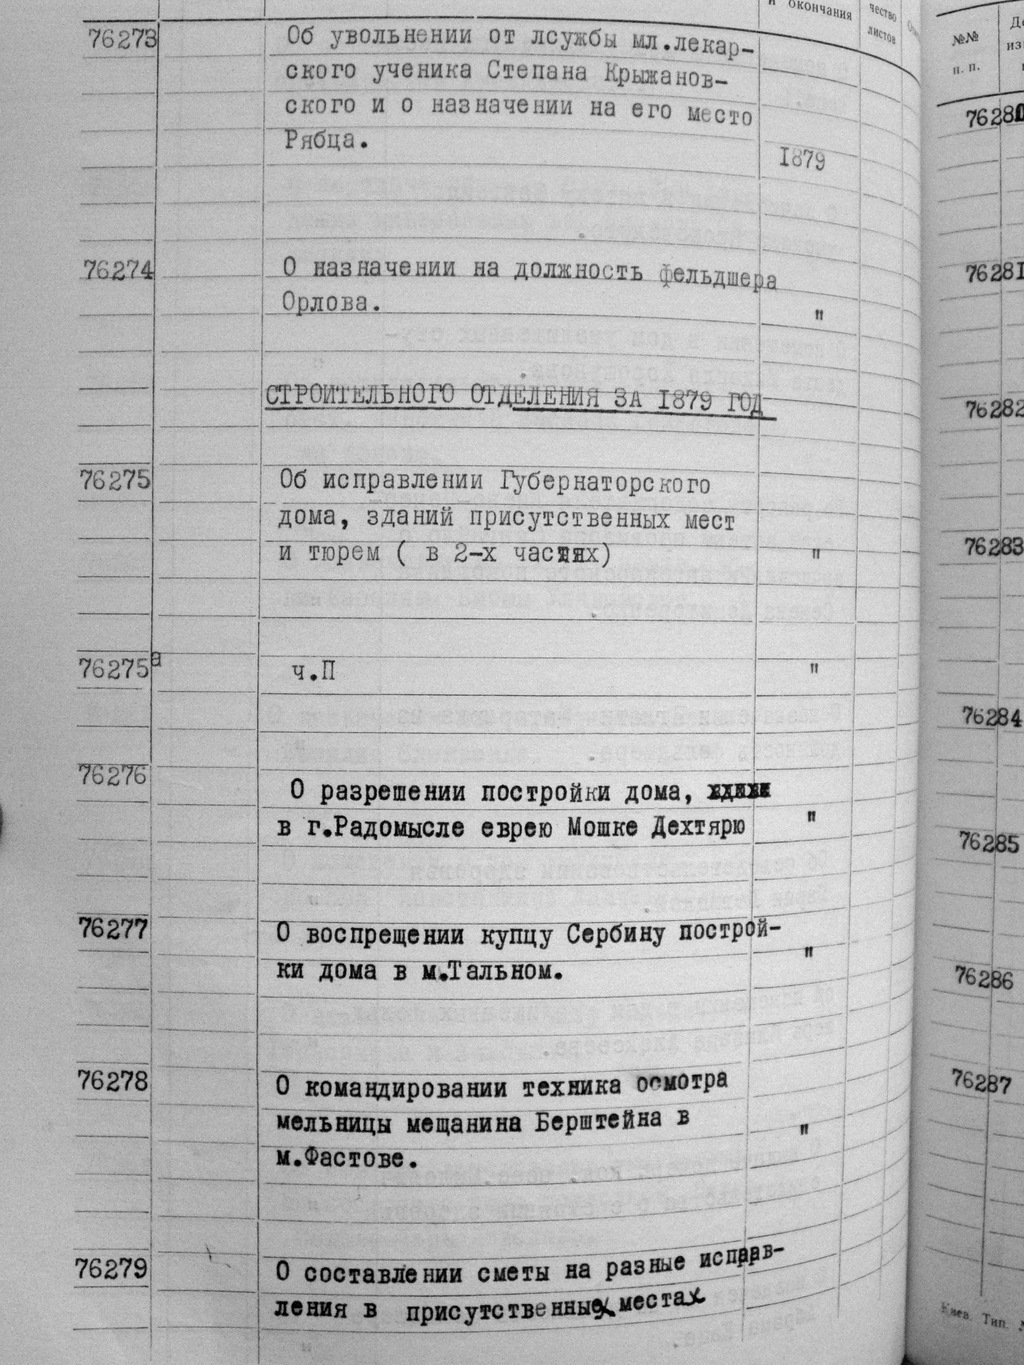 и окончания
чество
листов
76273 Об увольнении от лсужбы мл.лекар-
ского ученика Степана Крыжанов-
ского и о назначении на его место
Рябца.
1879
76274 О назначении на должность фельдшера
Орлова. "
СТРОИТЕЛЬНОГО ОТДЕЛЕНИЯ ЗА 1879 ГОД
76275 Об исправлении Губернаторского
дома, зданий присутственных мест
и тюрем ( в 2-х частях) "
76275а ч.П "
76276 О разрешении постройки дома,
в г.Радомысле еврею Мошке Дехтярю "
76277 О воспрещении купцу Сербину построй-
ки дома в м.Тальном. "
76278 О командировании техника осмотра
мельницы мещанина Берштейна в "
м.Фастове.
76279 О составлении сметы на разные исправ-
ления в присутственных местах
№№
п. п.
76280
76281
76282
76283
76284
76285
76286
76287
Киев. Тип.